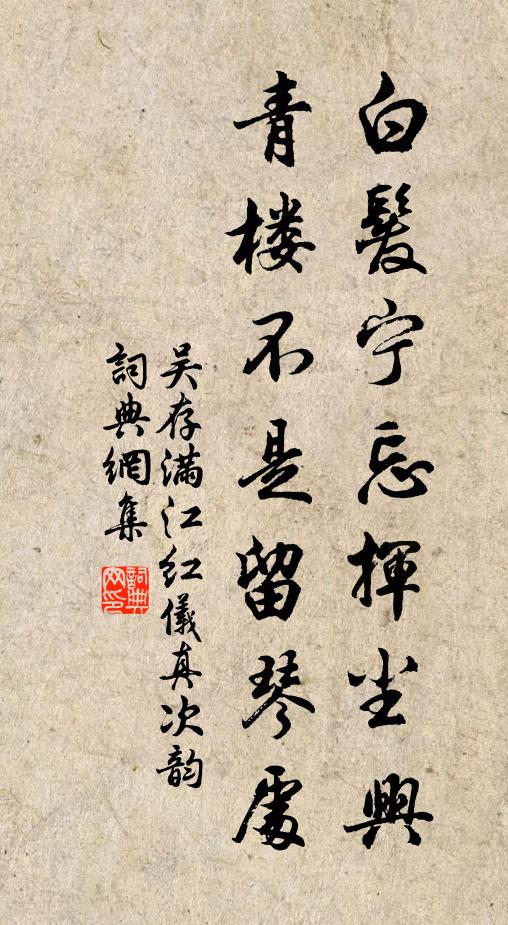 白髮宁忘揮尘興
青楼不是留琴處
吴存滿江红儀真次韵
詞典網集
詞典网印